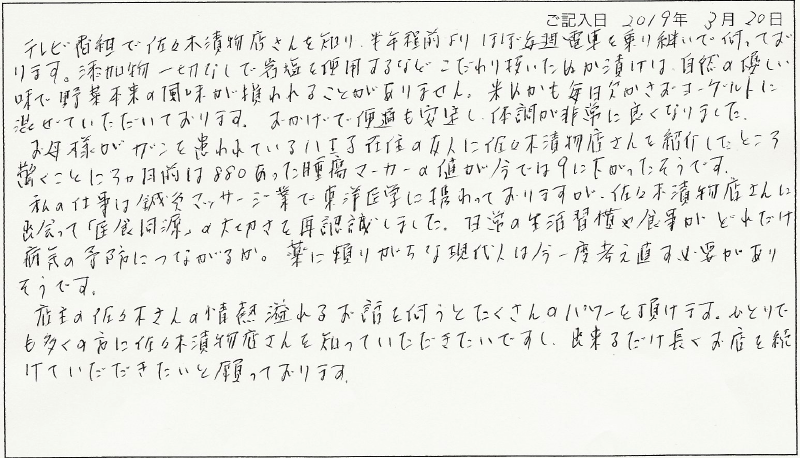 ご記入日 2019年 3月 20日
テレビ番組で佐々木漬物店さんを知り、半年程前よりほぼ毎週電車を乗り継いで伺ってお
ります。添加物一切なしで岩塩を使用するなどこだわり抜いたぬか漬けは、自然の優しい
味で野菜本来の風味が損われることがありません。米ぬかも毎日欠かさずヨーグルトに
混ぜていただいております。おかげで便通も安定し、体調が非常に良くなりました。
お母様がガンを患われている八王子在住の友人に佐々木漬物店さんを紹介したところ
驚くことに3ヵ月前は880あった腫瘍マーカーの値が今では9に下がったそうです。
私の仕事は鍼灸マッサージ業で東洋医学に携わっておりますが、佐々木漬物店さんに
出会って「医食同源」の大切さを再認識しました。日常の生活習慣や食事がどれだけ
病気の予防につながるか。薬に頼りがちな現代人は今一度考え直す必要があり
そうです。
店主の佐々木さんの情熱溢れるお話を伺うとたくさんのパワーを頂けます。ひとりで
も多くの方に佐々木漬物店さんを知っていただきたいですし、出来るだけ長くお店を続
けていただきたいと願っております。